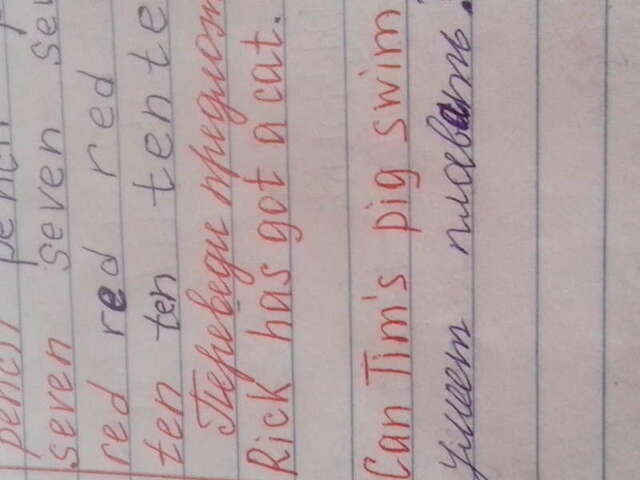 pencil pencil p
seven seven sev
red red red
ten ten ten te
Переведи предлож
Rick has got a cat.
Can Tim's pig swim
умеет плавать.